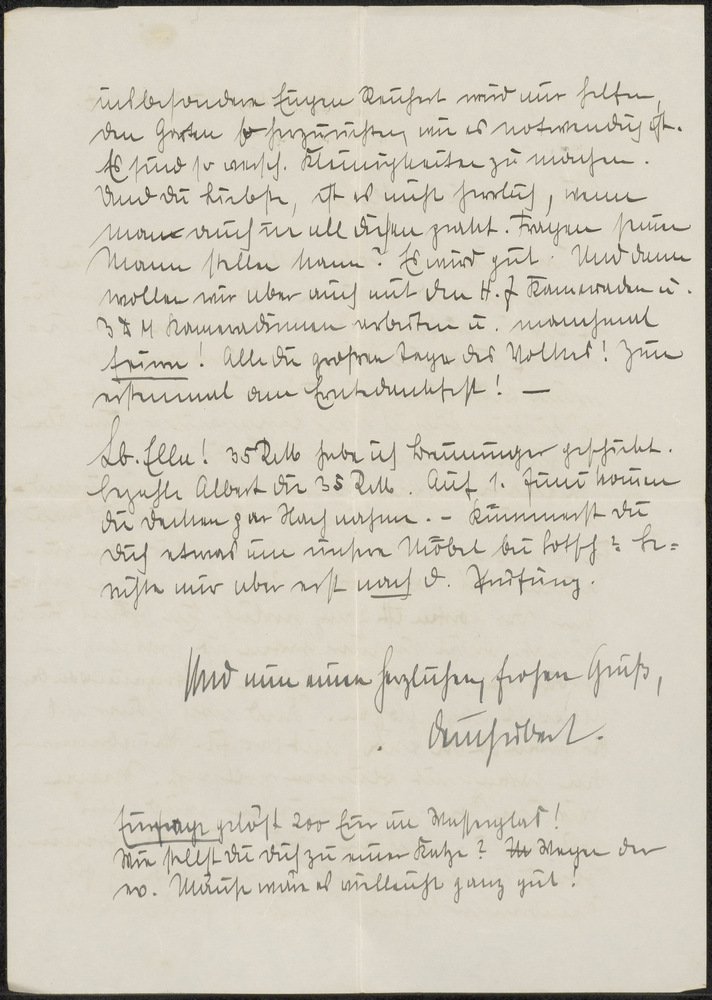 insbesondere Eugen Reichert wird mir helfen,
den Garten so herzurichten, wie es notwendig ist.
Es sind so versch. Kleinigkeiten zu machen.
Und du Liebste, ist es nicht herrlich, wenn
man auch in all diesen prakt. Fragen seinen
Mann stellen kann? Es wird gut. Und dann
wollen wir aber auch mit den H.J Kameraden u.
B D M Kameradinnen arbeiten u. manchmal
feiern! Alle die großen Tage des Volkes! Zum
erstenmal am Erntedankfest! —
Lb. Ella! 35 RM habe ich Breuninger geschickt.
bezahle Albert die 35 RM. Auf 1. Juni kommen
die Decken per Nachnahme. - Kümmerst du
dich etwas um unsere Möbel bei ? Be=
richte mir aber erst nach d. Prüfung.
Und nun einen herzlichen, frohen Gruß,
dein Hubert.
Eierfrage gelöst 200 Eier im Wasserglas!
Wie stellst du dich zu einer Katze? Wegen der
ev. Mäuse wäre es vielleicht ganz gut!